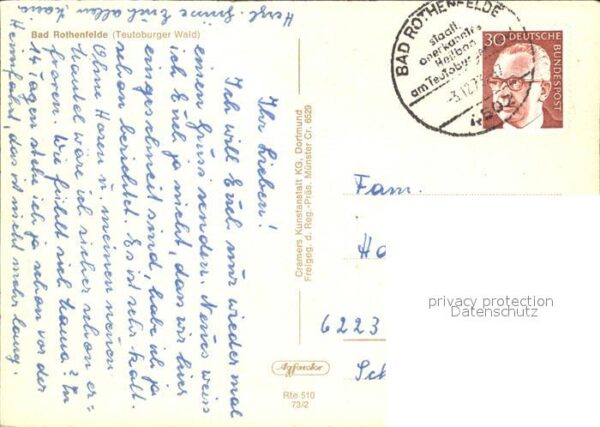 Herzl. Grüsse Euch allen Eure
Bad Rothenfelde (Teutoburger Wald)
Ihr Lieben!
Ich will Euch nur wieder mal
einen Gruss senden. Neues weiss
ich Euch ja nicht, dass wir hier
eingeschneit sind, habe ich ja
schon berichtet. Es ist sehr kalt.
Ohne Hosen u. meinen neuen
Mantel wäre ich sicher schon er=
froren. Wie fühlt sich ? In
14 Tagen stehe ich ja schon vor der
Heimfahrt, das ist nicht mehr lang.
Cramers Kunstanstalt KG, Dortmund
Freigeg. d. Reg.-Präs. Münster Cr. 6529
Rte 510
73/2
BAD ROTHENFELDE
staatl.
anerkanntes
Heilbad
am Teutoburger
-3.12.73
4502
30 DEUTSCHE
BUNDESPOST
Fam.
Ha
6223
Sch
privacy protection
Datenschutz